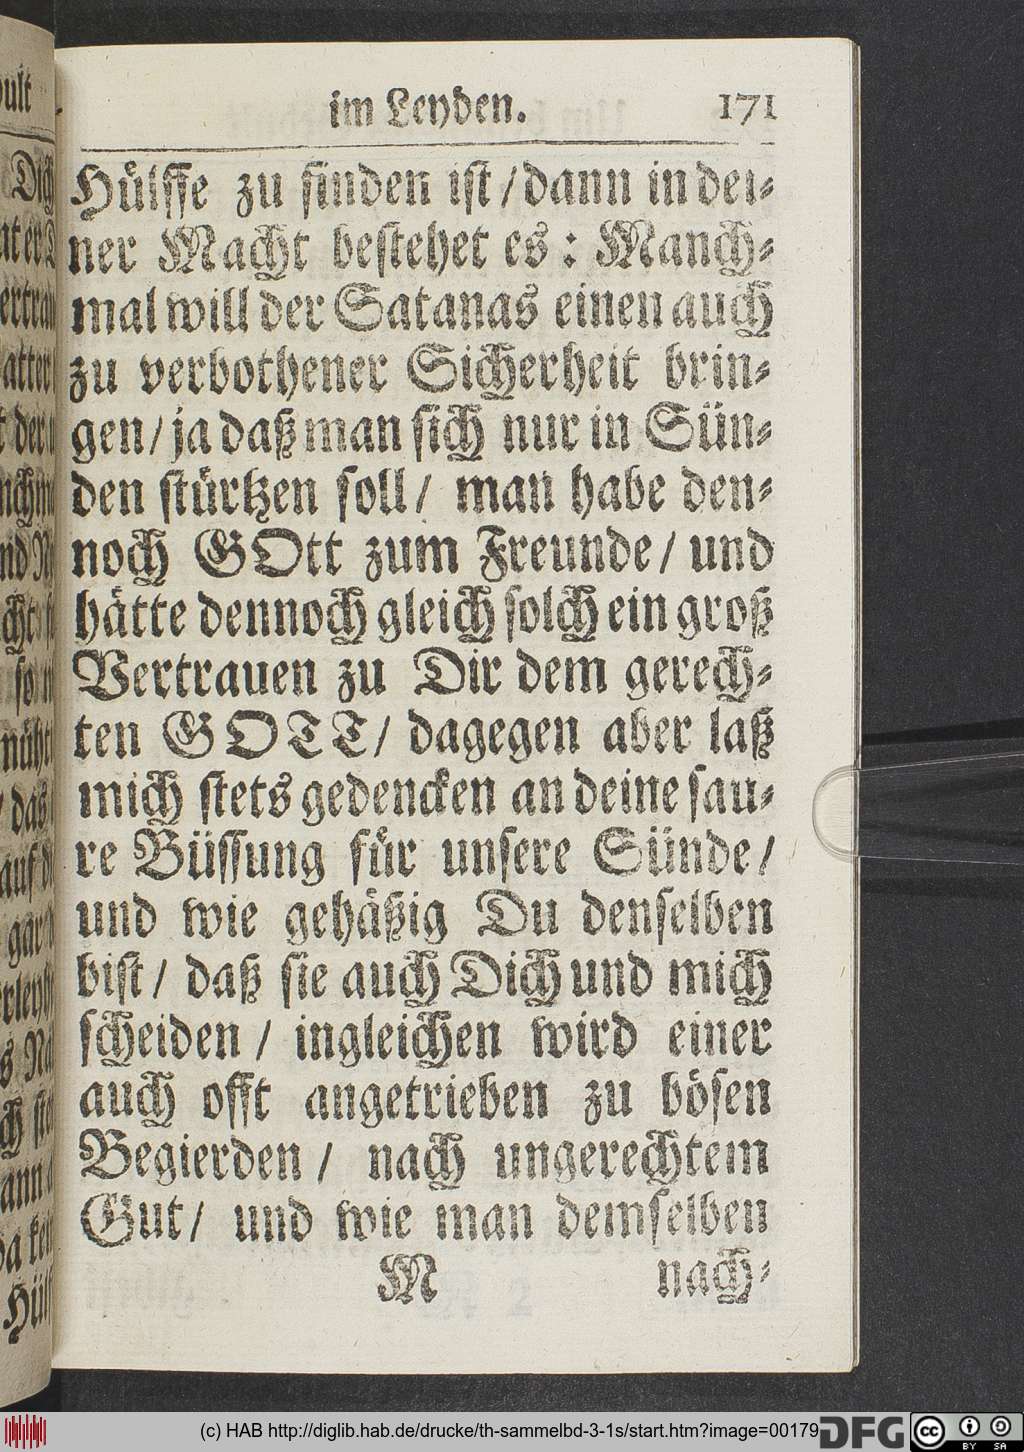 im Leyden. 171
Hülffe zu finden ist / dann in dei-
ner Macht bestehet es : Manch-
mal will der Satanas einen auch
zu verbothener Sicherheit brin-
gen / ja daß man sich nur in Sün-
den stürtzen soll / man habe den-
noch GOtt zum Freunde / und
hätte dennoch gleich solch ein groß
Vertrauen zu Dir dem gerech-
ten GOTT / dagegen aber laß
mich stets gedencken an deine sau-
re Büssung für unsere Sünde /
und wie gehäßig Du denselben
bist / daß sie auch Dich und mich
scheiden / ingleichen wird einer
auch offt angetrieben zu bösen
Begierden / nach ungerechtem
Gut / und wie man demselben
M nach-
(c) HAB http://diglib.hab.de/drucke/th-sammelbd-3-1s/start.htm?image=00179
DFG cc BY SA